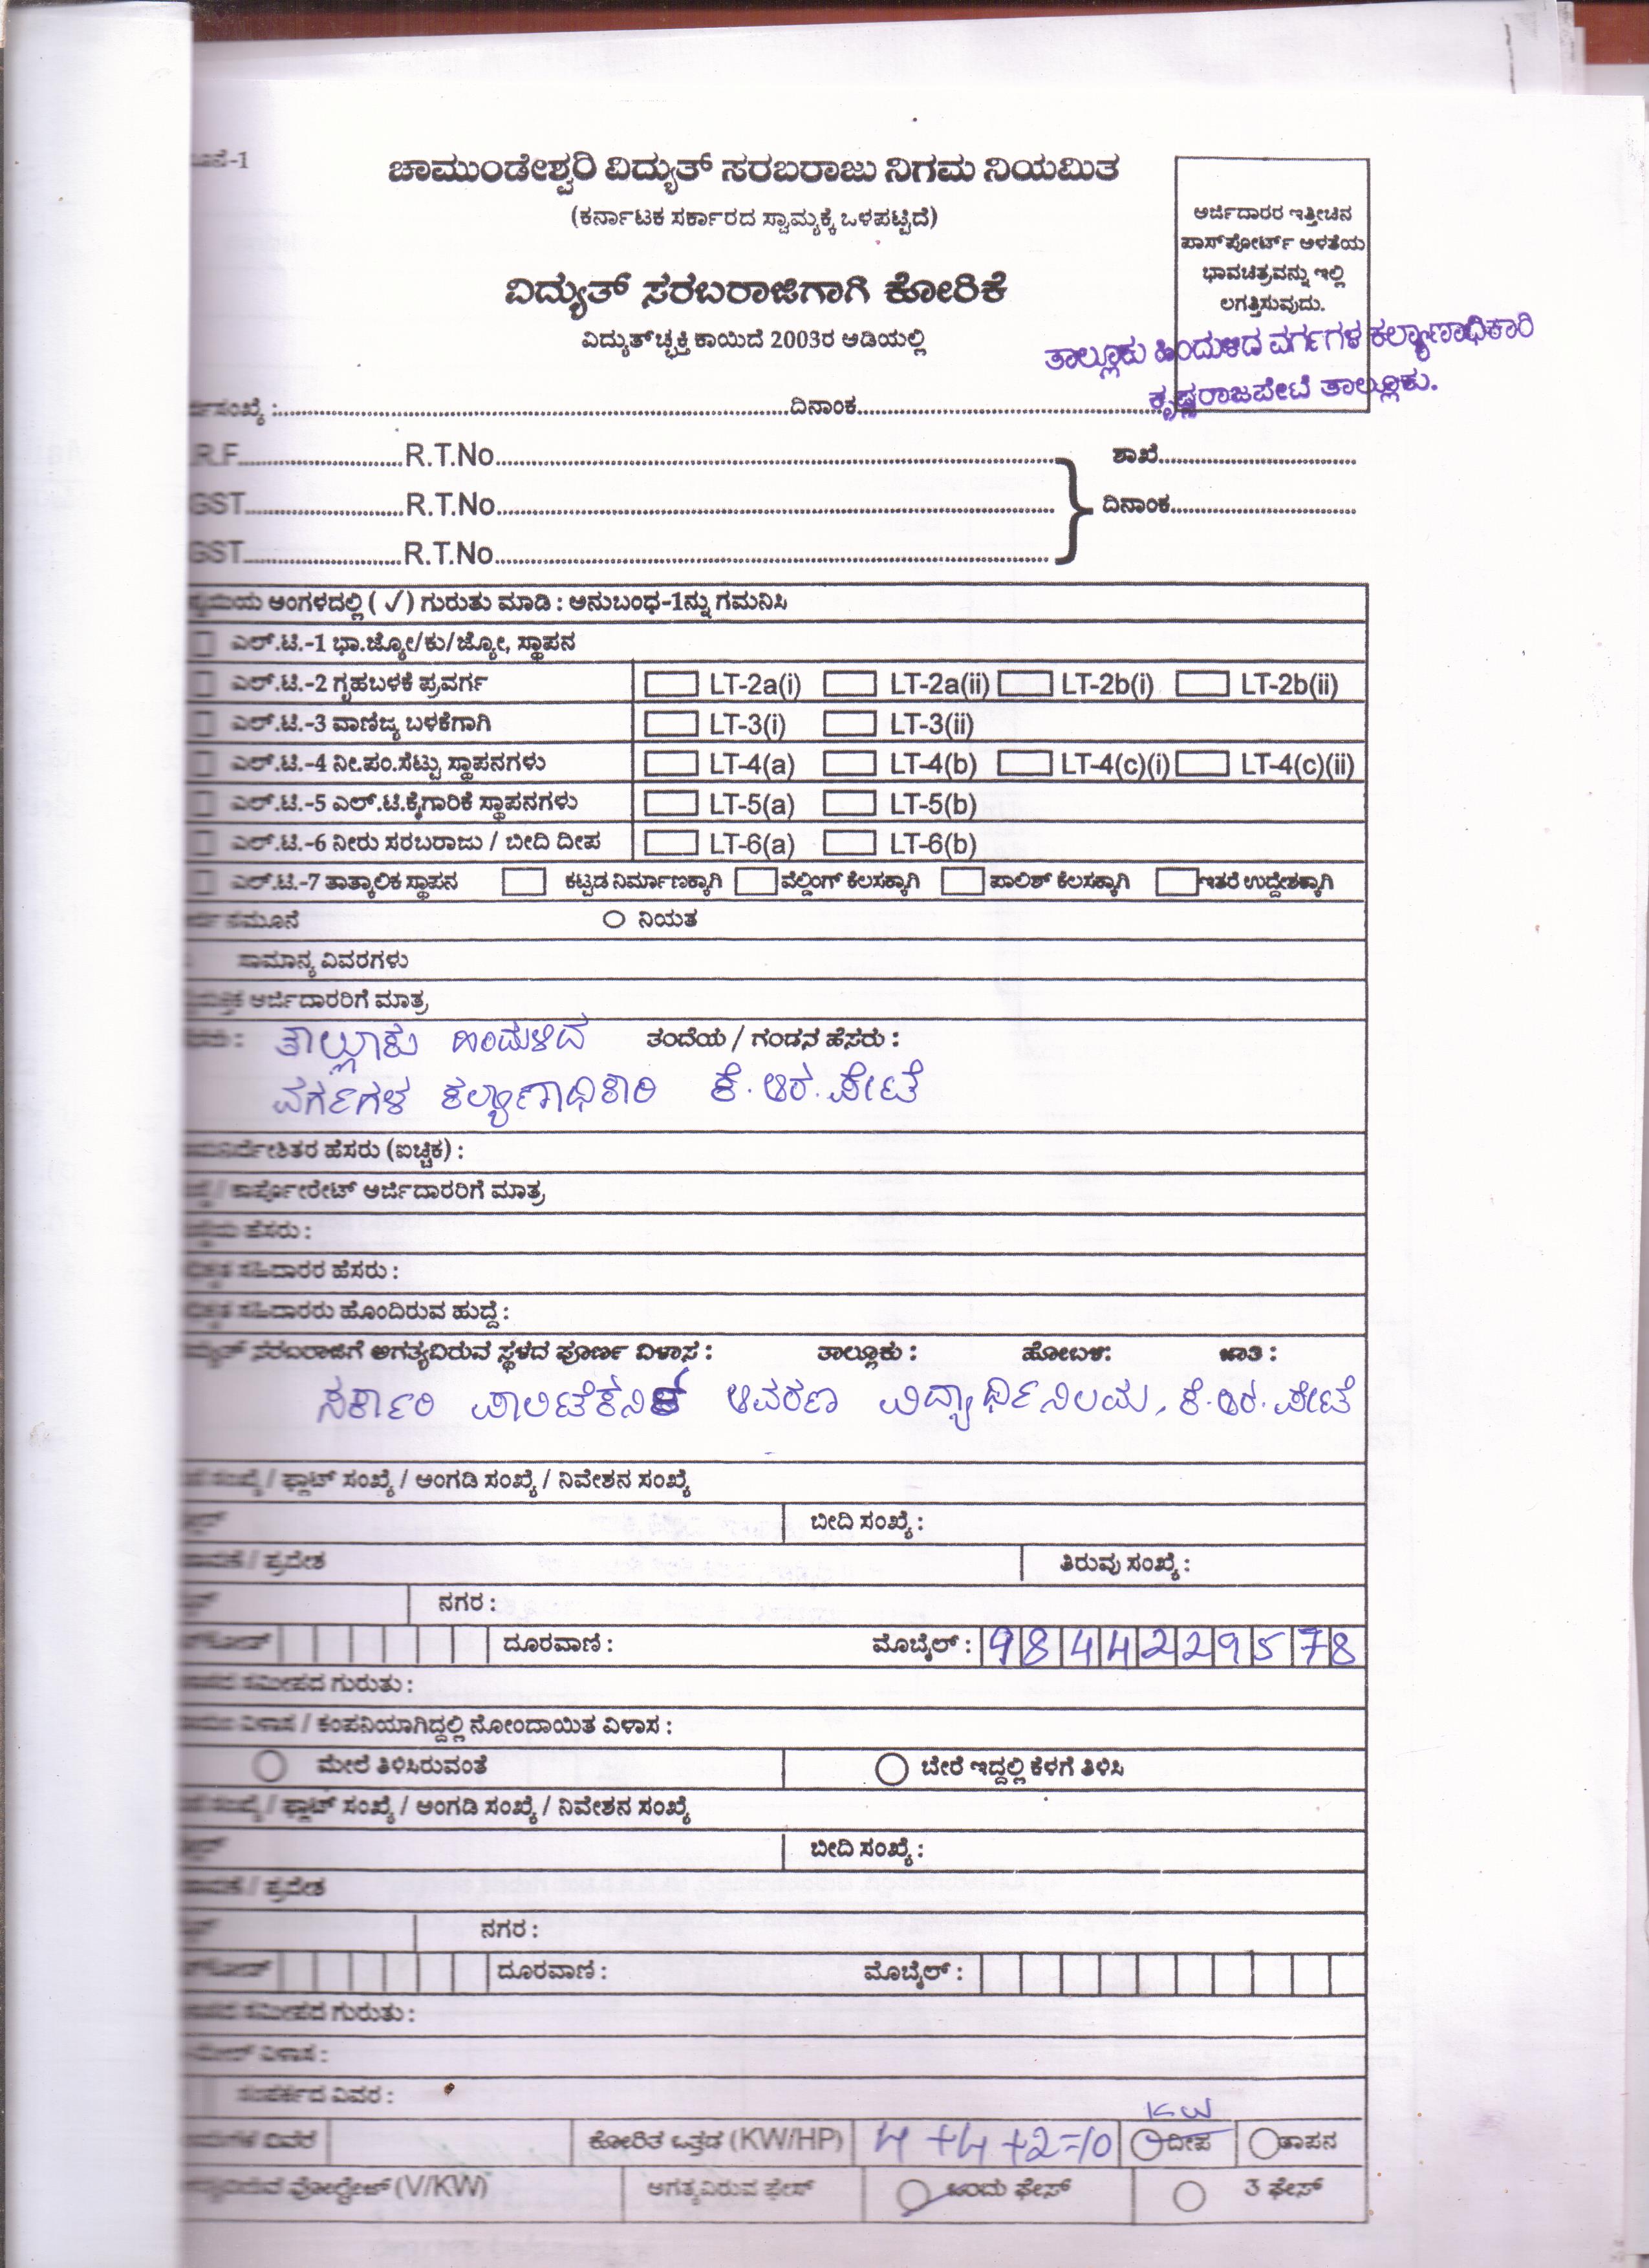 ಚಾಮುಂಡೇಶ್ವರಿ ವಿದ್ಯುತ್ ಸರಬರಾಜು ನಿಗಮ ನಿಯಮಿತ
(ಕರ್ನಾಟಕ ಸರ್ಕಾರದ ಸ್ವಾಮ್ಯಕ್ಕೆ ಒಳಪಟ್ಟಿದೆ)
ಅರ್ಜಿದಾರರ ಇತ್ತೀಚಿನ
ಪಾಸ್‌ಪೋರ್ಟ್ ಅಳತೆಯ
ಭಾವಚಿತ್ರವನ್ನು ಇಲ್ಲಿ
ಲಗತ್ತಿಸುವುದು.
ವಿದ್ಯುತ್ ಸರಬರಾಜಿಗಾಗಿ ಕೋರಿಕೆ
ವಿದ್ಯುತ್‌ಚ್ಛಕ್ತಿ ಕಾಯಿದೆ 2003ರ ಅಡಿಯಲ್ಲಿ
ತಾಲ್ಲೂಕು ಹಿಂದುಳಿದ ವರ್ಗಗಳ ಕಲ್ಯಾಣಾಧಿಕಾರಿ
ಕೃಷ್ಣರಾಜಪೇಟೆ ತಾಲ್ಲೂಕು.
ಸಂಖ್ಯೆ :..........ದಿನಾಂಕ..........
R.F..........R.T.No.......... ಶಾಖೆ..........
GST..........R.T.No.......... ದಿನಾಂಕ..........
GST..........R.T.No..........
ಅಂಗಳದಲ್ಲಿ ( ✓ ) ಗುರುತು ಮಾಡಿ : ಅನುಬಂಧ-1ನ್ನು ಗಮನಿಸಿ
ಎಲ್.ಟಿ.-1 ಭಾ.ಜ್ಯೋ/ಕು/ಜ್ಯೋ, ಸ್ಥಾಪನ
ಎಲ್.ಟಿ.-2 ಗೃಹಬಳಕೆ ಪ್ರವರ್ಗ LT-2a(i) LT-2a(ii) LT-2b(i) LT-2b(ii)
ಎಲ್.ಟಿ.-3 ವಾಣಿಜ್ಯ ಬಳಕೆಗಾಗಿ LT-3(i) LT-3(ii)
ಎಲ್.ಟಿ.-4 ನೀ.ಪಂ.ಸೆಟ್ಟು ಸ್ಥಾಪನಗಳು LT-4(a) LT-4(b) LT-4(c)(i) LT-4(c)(ii)
ಎಲ್.ಟಿ.-5 ಎಲ್.ಟಿ.ಕೈಗಾರಿಕೆ ಸ್ಥಾಪನಗಳು LT-5(a) LT-5(b)
ಎಲ್.ಟಿ.-6 ನೀರು ಸರಬರಾಜು / ಬೀದಿ ದೀಪ LT-6(a) LT-6(b)
ಎಲ್.ಟಿ.-7 ತಾತ್ಕಾಲಿಕ ಸ್ಥಾಪನ ಕಟ್ಟಡ ನಿರ್ಮಾಣಕ್ಕಾಗಿ ವೆಲ್ಡಿಂಗ್ ಕೆಲಸಕ್ಕಾಗಿ ಪಾಲಿಶ್ ಕೆಲಸಕ್ಕಾಗಿ ಇತರೆ ಉದ್ದೇಶಕ್ಕಾಗಿ
ನಮೂನೆ ನಿಯತ
ಸಾಮಾನ್ಯ ವಿವರಗಳು
ಅರ್ಜಿದಾರರಿಗೆ ಮಾತ್ರ
ತಾಲ್ಲೂಕು ಹಿಂದುಳಿದ ತಂದೆಯ / ಗಂಡನ ಹೆಸರು :
ವರ್ಗಗಳ ಕಲ್ಯಾಣಾಧಿಕಾರಿ ಕೆ.ಆರ.ಪೇಟೆ
ಹೆಸರು (ಐಚ್ಛಿಕ) :
ಕಾರ್ಪೋರೇಟ್ ಅರ್ಜಿದಾರರಿಗೆ ಮಾತ್ರ
ಹೆಸರು :
ಸಹಿದಾರರ ಹೆಸರು :
ಸಹಿದಾರರು ಹೊಂದಿರುವ ಹುದ್ದೆ :
ಸರಬರಾಜಿಗೆ ಅಗತ್ಯವಿರುವ ಸ್ಥಳದ ಪೂರ್ಣ ವಿಳಾಸ : ತಾಲ್ಲೂಕು : ಹೋಬಳಿ: ಜಾತಿ :
ಸರ್ಕಾರಿ ಪಾಲಿಟೆಕನಿಕ್ ಆವರಣ ವಿದ್ಯಾರ್ಥಿನಿಲಯ, ಕೆ.ಆರ.ಪೇಟೆ
ಸಂಖ್ಯೆ / ಫ್ಲಾಟ್ ಸಂಖ್ಯೆ / ಅಂಗಡಿ ಸಂಖ್ಯೆ / ನಿವೇಶನ ಸಂಖ್ಯೆ
ಬೀದಿ ಸಂಖ್ಯೆ :
ಪ್ರದೇಶ ತಿರುವು ಸಂಖ್ಯೆ :
ನಗರ :
ದೂರವಾಣಿ : ಮೊಬೈಲ್ : 9844229578
ಸಮೀಪದ ಗುರುತು :
ವಿಳಾಸ / ಕಂಪನಿಯಾಗಿದ್ದಲ್ಲಿ ನೋಂದಾಯಿತ ವಿಳಾಸ :
ಮೇಲೆ ತಿಳಿಸಿರುವಂತೆ ಬೇರೆ ಇದ್ದಲ್ಲಿ ಕೆಳಗೆ ತಿಳಿಸಿ
ಸಂಖ್ಯೆ / ಫ್ಲಾಟ್ ಸಂಖ್ಯೆ / ಅಂಗಡಿ ಸಂಖ್ಯೆ / ನಿವೇಶನ ಸಂಖ್ಯೆ
ಬೀದಿ ಸಂಖ್ಯೆ :
ಪ್ರದೇಶ
ನಗರ :
ದೂರವಾಣಿ : ಮೊಬೈಲ್ :
ಸಮೀಪದ ಗುರುತು :
ವಿಳಾಸ :
ಸಂಪರ್ಕದ ವಿವರ :
KW
ವಿವರ ಕೋರಿತ ಒತ್ತಡ (KW/HP) 4+4+2=10 ದೀಪ ತಾಪನ
ವೋಲ್ಟೇಜ್ (V/KW) ಅಗತ್ಯವಿರುವ ಫೇಸ್ ಒಂದು ಫೇಸ್ 3 ಫೇಸ್